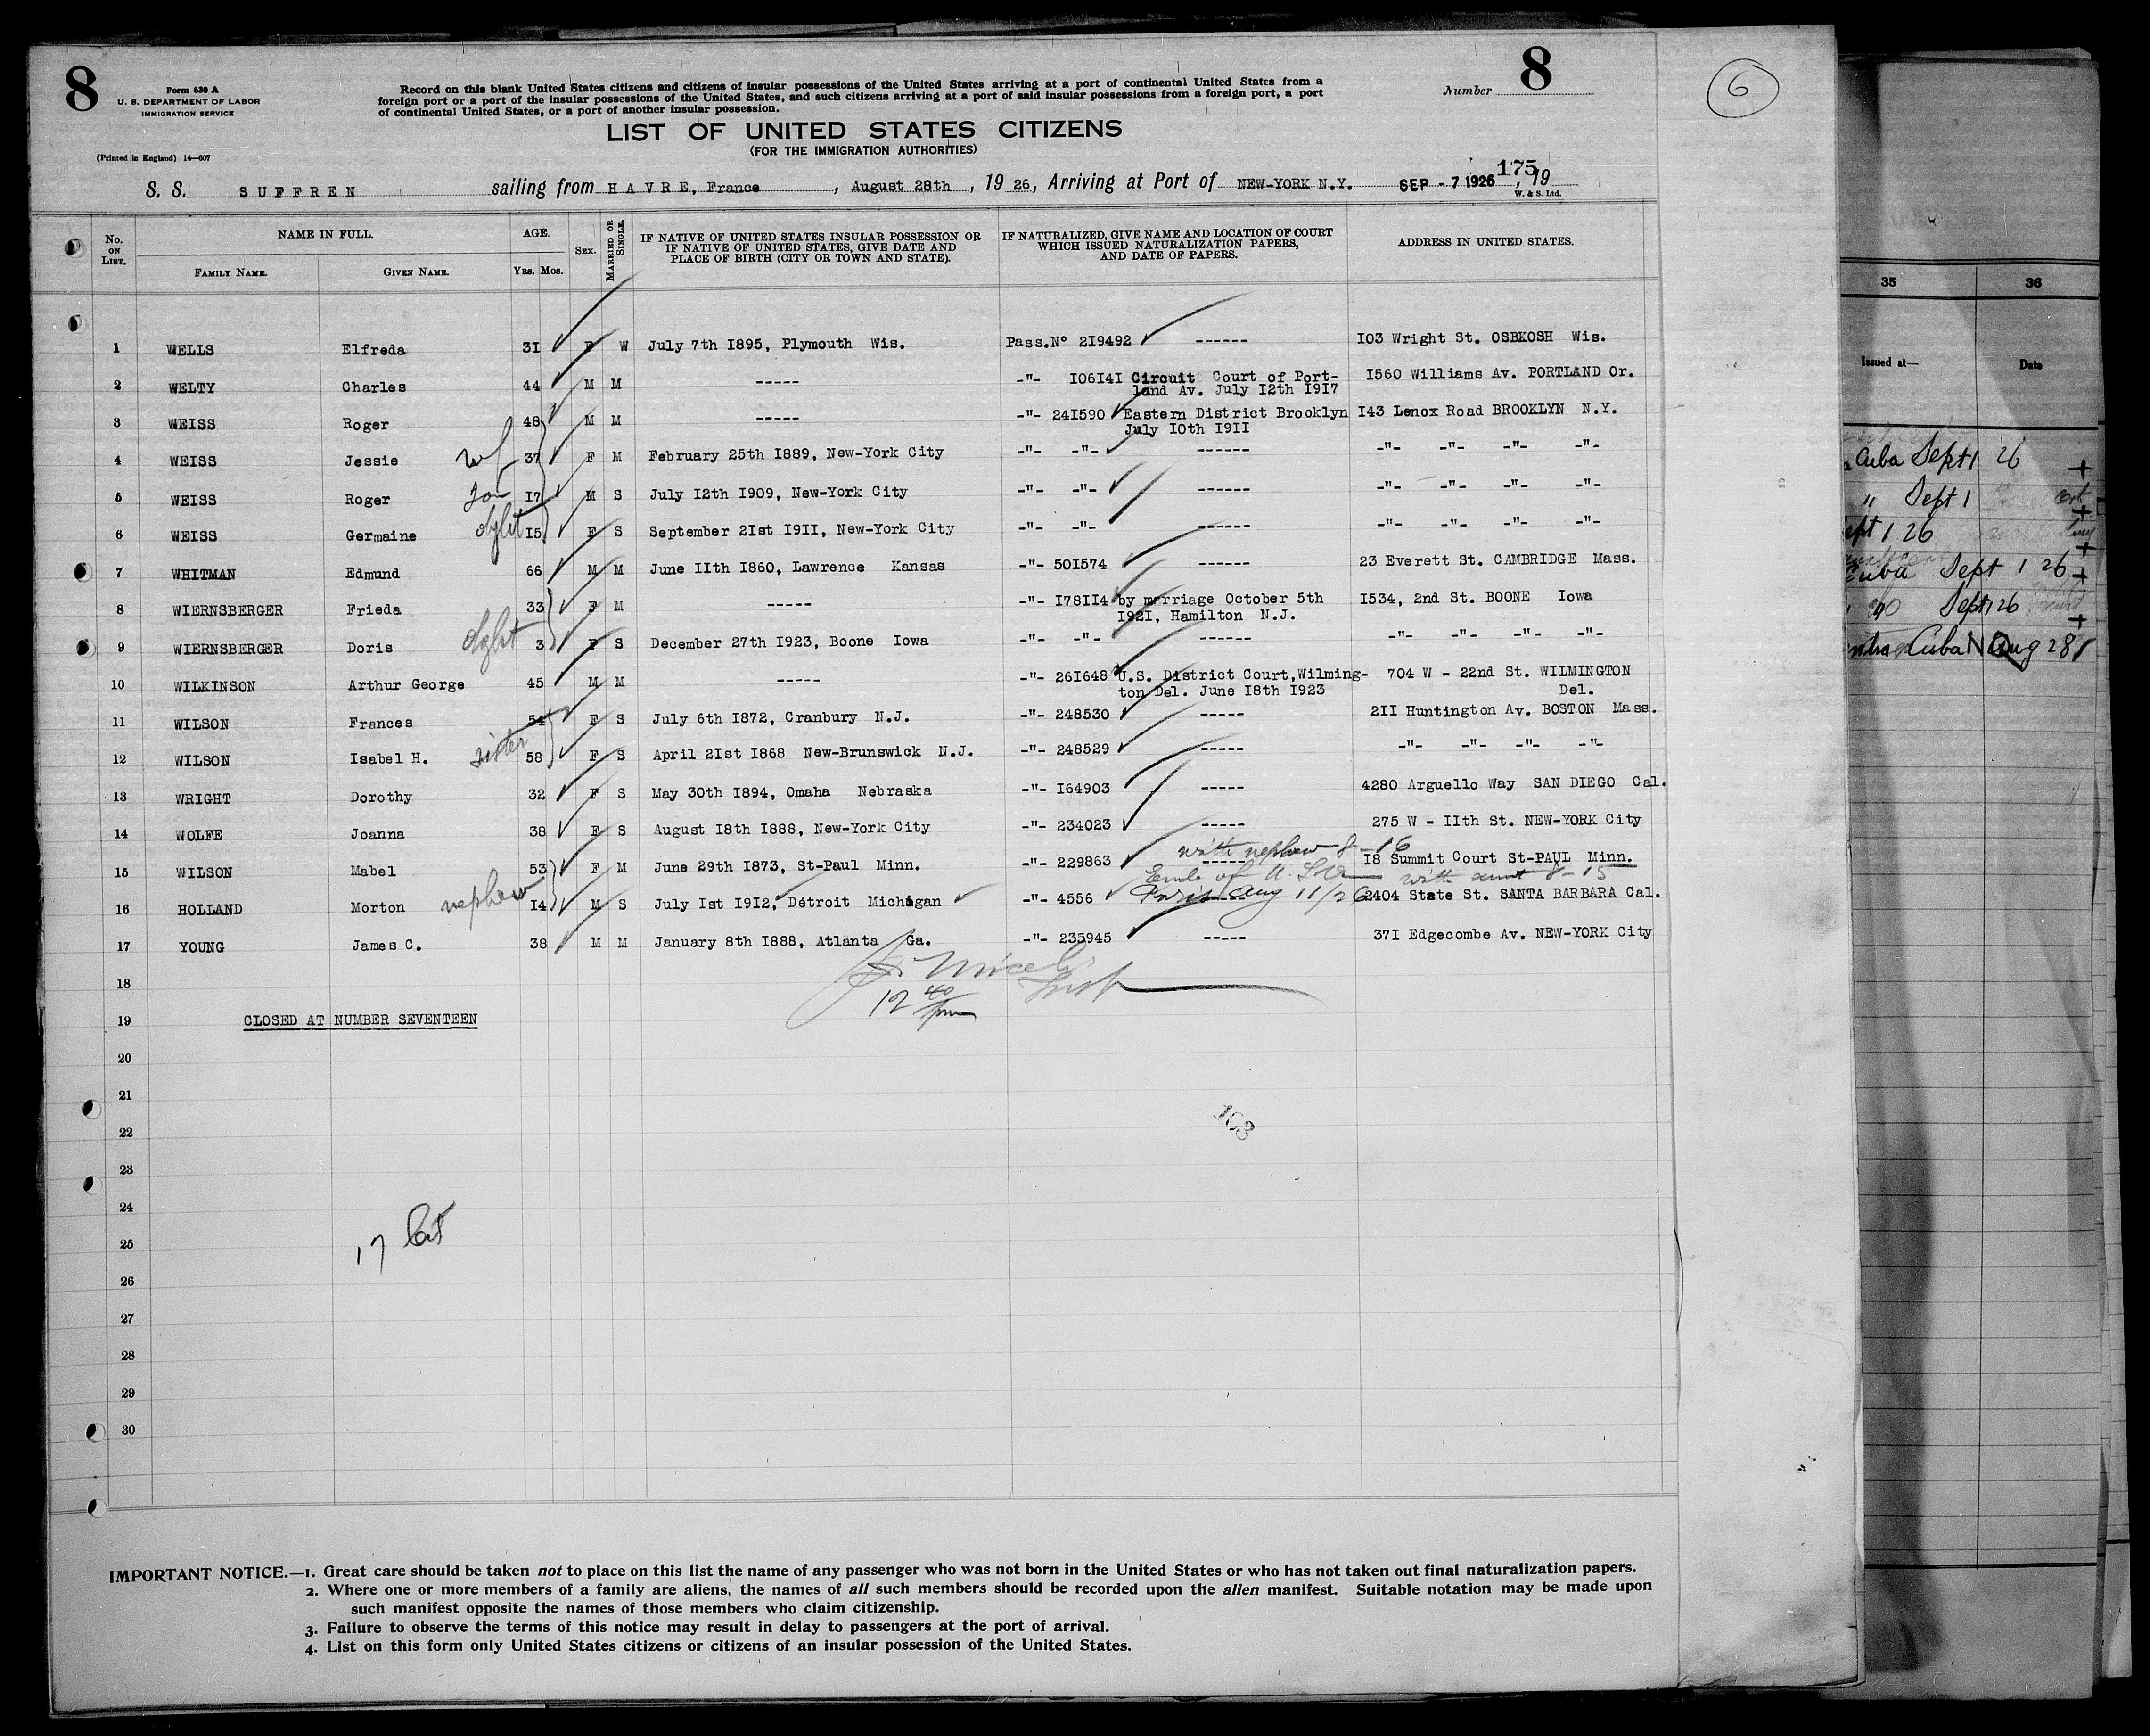 8
Form 630 A
U. S. DEPARTMENT OF LABOR
IMMIGRATION SERVICE
(Printed in England) 14—607
Record on this blank United States citizens and citizens of insular possessions of the United States arriving at a port of continental United States from a
foreign port or a port of the insular possessions of the United States, and such citizens arriving at a port of said insular possessions from a foreign port, a port
of continental United States, or a port of another insular possession.
Number 8
6
LIST OF UNITED STATES CITIZENS
(FOR THE IMMIGRATION AUTHORITIES)
175
S. S. SUFFREN sailing from HAVRE, France , August 28th , 19 26, Arriving at Port of NEW-YORK N.Y. SEP - 7 1926 , 19
W. & S. Ltd.
No. ON LIST. NAME IN FULL. FAMILY NAME. GIVEN NAME. AGE. YRS. MOS. SEX. MARRIED OR SINGLE. IF NATIVE OF UNITED STATES INSULAR POSSESSION OR IF NATIVE OF UNITED STATES, GIVE DATE AND PLACE OF BIRTH (CITY OR TOWN AND STATE). IF NATURALIZED, GIVE NAME AND LOCATION OF COURT WHICH ISSUED NATURALIZATION PAPERS, AND DATE OF PAPERS. ADDRESS IN UNITED STATES.
1 WELLS Elfreda 3I F W July 7th I895, Plymouth Wis. Pass.N° 2I9492 ------ I03 Wright St. OSBKOSH Wis.
2 WELTY Charles 44 M M ----- -"- I06I4I Circuit Court of Port- I560 Williams Av. PORTLAND Or.
land Av. July I2th I9I7
3 WEISS Roger 48 M M ----- -"- 24I590 Eastern District Brooklyn I43 Lenox Road BROOKLYN N.Y.
July I0th I9II
4 WEISS Jessie wf 37 F M February 25th I889, New-York City -"- -"- ------ -"- -"- -"- -"-
5 WEISS Roger son I7 M S July I2th I909, New-York City -"- -"- ------ -"- -"- -"- -"-
6 WEISS Germaine dght I5 F S September 2Ist I9II, New-York City -"- -"- ------ -"- -"- -"- -"-
7 WHITMAN Edmund 66 M M June IIth I860, Lawrence Kansas -"- 50I574 ------ 23 Everett St. CAMBRIDGE Mass.
8 WIERNSBERGER Frieda 33 F M ----- -"- I78II4 by marriage October 5th I534, 2nd St. BOONE Iowa
I92I, Hamilton N.J.
9 WIERNSBERGER Doris dght 3 F S December 27th I923, Boone Iowa -"- -"- ------ -"- -"- -"- -"-
10 WILKINSON Arthur George 45 M M ----- -"- 26I648 U.S. District Court,Wilming- 704 W - 22nd St. WILMINGTON
ton Del. June I8th I923 Del.
11 WILSON Frances 54 F S July 6th I872, Cranbury N.J. -"- 248530 ----- 2II Huntington Av. BOSTON Mass.
12 WILSON Isabel H. sister 58 F S April 2Ist I868 New-Brunswick N.J. -"- 248529 ----- -"- -"- -"- -"-
13 WRIGHT Dorothy 32 F S May 30th I894, Omaha Nebraska -"- I64903 ----- 4280 Arguello Way SAN DIEGO Cal.
14 WOLFE Joanna 38 F S August I8th I888, New-York City -"- 234023 ----- 275 W - IIth St. NEW-YORK City
with nephew 8-16
15 WILSON Mabel 53 F M June 29th I873, St-Paul Minn. -"- 229863 ----- I8 Summit Court St-PAUL Minn.
with aunt 8-15
16 HOLLAND Morton nephew I4 M S July Ist I9I2, Détroit Michigan -"- 4556 Paris Aug 11/26 2404 State St. SANTA BARBARA Cal.
17 YOUNG James C. 38 M M January 8th I888, Atlanta Ga. -"- 235945 ----- 37I Edgecombe Av. NEW-YORK City
18
12 40 pm
19 CLOSED AT NUMBER SEVENTEEN
20
21
22
108
23
24
17
25
26
27
28
29
30
IMPORTANT NOTICE.—1. Great care should be taken not to place on this list the name of any passenger who was not born in the United States or who has not taken out final naturalization papers.
2. Where one or more members of a family are aliens, the names of all such members should be recorded upon the alien manifest. Suitable notation may be made upon
such manifest opposite the names of those members who claim citizenship.
3. Failure to observe the terms of this notice may result in delay to passengers at the port of arrival.
4. List on this form only United States citizens or citizens of an insular possession of the United States.
35 36
Issued at— Date
Cuba Sept 1 26
" Sept 1
ept 1 26
Cuba Sept 1 26
Sept 1 26
Cuba Aug 28